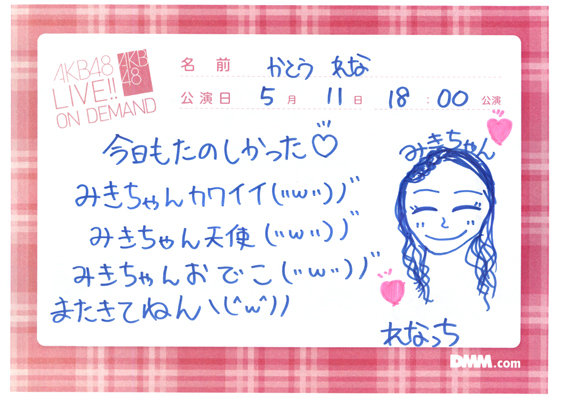 AKB48
LIVE!!
ON DEMAND
AKB
48
名前 かとう れな
公演日 5月 11日 18:00 公演
今日もたのしかった♡
みきちゃんカワイイ("ω")ノ"
みきちゃん天使("ω")ノ"
みきちゃんおでこ("ω")ノ"
またきてねんヽ(^ω^)ノ
みきちゃん
れなっち
DMM.com